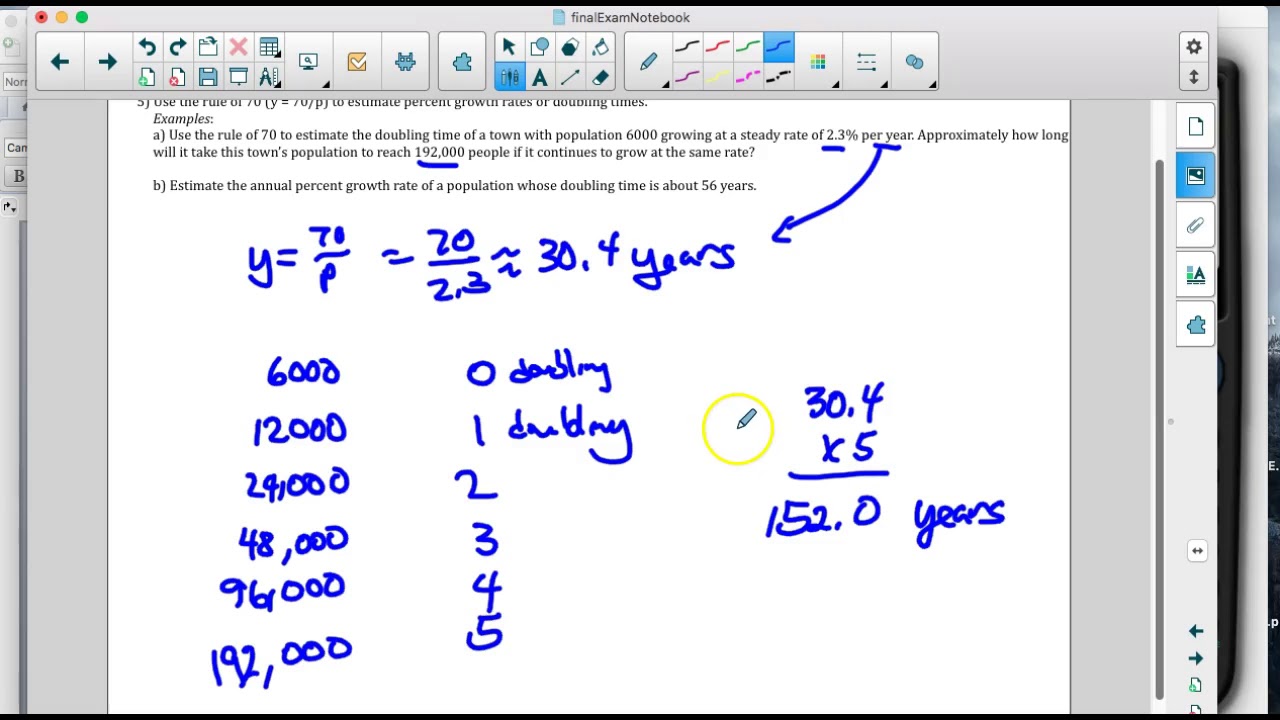 finalExamNotebook
Norm
Cam
B
A
A
5) Use the rule of 70 (y = 70/p) to estimate percent growth rates or doubling times.
Examples:
a) Use the rule of 70 to estimate the doubling time of a town with population 6000 growing at a steady rate of 2.3% per year. Approximately how long
will it take this town's population to reach 192,000 people if it continues to grow at the same rate?
b) Estimate the annual percent growth rate of a population whose doubling time is about 56 years.
y = 70/p = 70/2.3 ≈ 30.4 years
6000 0 doubling
12000 1 doubling
24,000 2
48,000 3
96,000 4
192,000 5
30.4
x 5
152.0 years
E.
.p